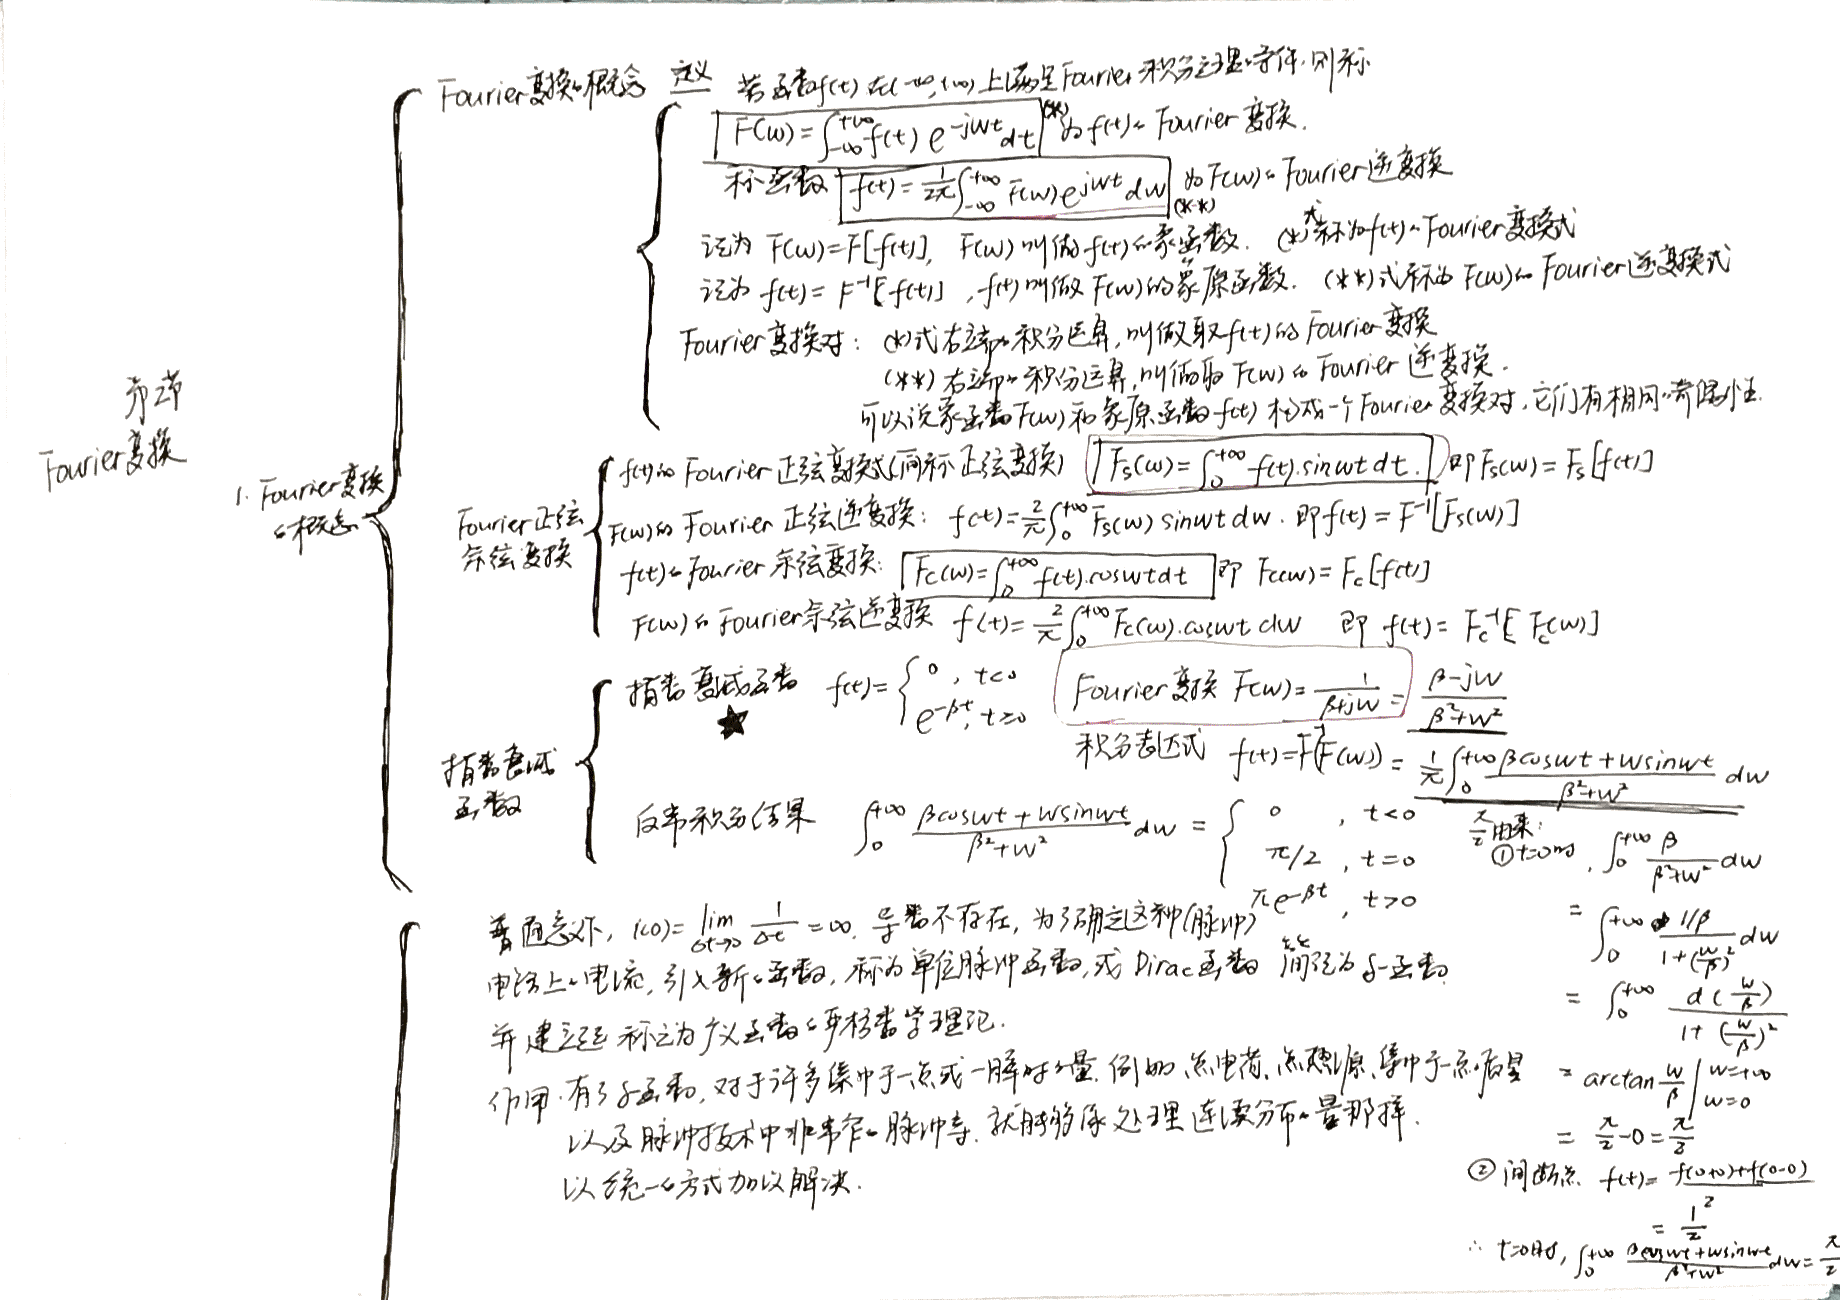 第二节
Fourier变换
1. Fourier变换
的概念
Fourier变换的概念 定义 若函数f(t)在(-∞,+∞)上满足Fourier积分定理的条件,则称
F(w)=∫_{-∞}^{+∞} f(t) e^{-jwt} dt (*) 为f(t)的Fourier变换.
称函数 f(t)=\frac{1}{2π}∫_{-∞}^{+∞} F(w)e^{jwt} dw (**) 为F(w)的Fourier逆变换
记为 F(w)=F[f(t)], F(w)叫做f(t)的象函数. (*)式称为f(t)的Fourier变换式
记为 f(t)=F^{-1}[f(t)], f(t)叫做F(w)的象原函数. (**)式称为F(w)的Fourier逆变换式
Fourier变换对: (*)式右端的积分运算,叫做取f(t)的Fourier变换
(**)右端的积分运算,叫做取F(w)的Fourier逆变换.
可以说象函数F(w)和象原函数f(t)构成一个Fourier变换对,它们有相同的奇偶性.
Fourier正弦
余弦变换
f(t)的Fourier正弦变换式(简称正弦变换) F_s(w)=∫_0^{+∞} f(t).sinwt dt. 即F_s(w)=F_s[f(t)]
F(w)的Fourier正弦逆变换: f(t)=\frac{2}{π}∫_0^{+∞} F_s(w) sinwt dw. 即f(t)=F^{-1}[F_s(w)]
f(t)的Fourier余弦变换: F_c(w)=∫_0^{+∞} f(t).coswtdt 即 F_c(w)=F_c[f(t)]
F(w)的Fourier余弦逆变换 f(t)=\frac{2}{π}∫_0^{+∞} F_c(w).coswt dw 即 f(t)=F_c^{-1}[F_c(w)]
指数衰减
函数
指数衰减函数 ★ f(t)={0, t<0
e^{-βt}, t≥0
Fourier变换 F(w)=\frac{1}{β+jw}=\frac{β-jw}{β²+w²}
积分表达式 f(t)=F^{-1}(F(w))=\frac{1}{π}∫_0^{+∞}\frac{βcoswt+wsinwt}{β²+w²}dw
反常积分结果 ∫_0^{+∞}\frac{βcoswt+wsinwt}{β²+w²}dw={0, t<0
π/2, t=0
πe^{-βt}, t>0
\frac{π}{2}由来:
①t=0时, ∫_0^{+∞}\frac{β}{β²+w²}dw
=∫_0^{+∞}\frac{1/β}{1+(\frac{w}{β})²}dw
=∫_0^{+∞}\frac{d(\frac{w}{β})}{1+(\frac{w}{β})²}
=arctan\frac{w}{β}|_{w=0}^{w=+∞}
=\frac{π}{2}-0=\frac{π}{2}
②间断点 f(t)=\frac{f(0+0)+f(0-0)}{2}
=\frac{1}{2}
∴t=0时, ∫_0^{+∞}\frac{βcoswt+wsinwt}{β²+w²}dw=\frac{π}{2}
普通意义下, i(0)=lim_{Δt→0}\frac{1}{Δt}=∞. 导数不存在, 为了确定这种(脉冲)
电路上的电流, 引入新的函数, 称为单位脉冲函数, 或Dirac函数 简记为δ-函数
并建立起称之为广义函数的严格数学理论.
作用.有了δ函数, 对于许多集中于一点或一瞬时的量. 例如点电荷、点热源、集中于一点的质量
以及脉冲技术中非常窄的脉冲等. 就能够像处理连续分布的量那样.
以统一的方式加以解决.